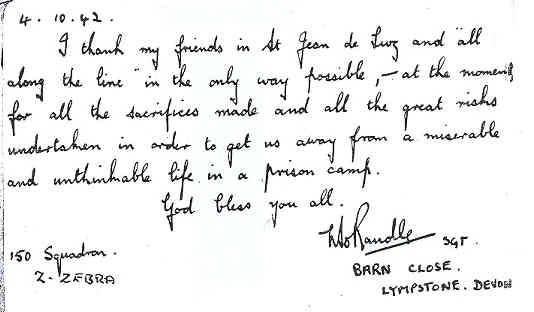 4. 10. 42.
I thank my friends in St Jean de Luz and "all
along the line" in the only way possible, – at the moment,
for all the sacrifices made and all the great risks
undertaken in order to get us away from a miserable
and unthinkable life in a prison camp.
God bless you all.
Randle SGT.
150 Squadron.
Z-ZEBRA
BARN CLOSE.
LYMPSTONE. DEVON